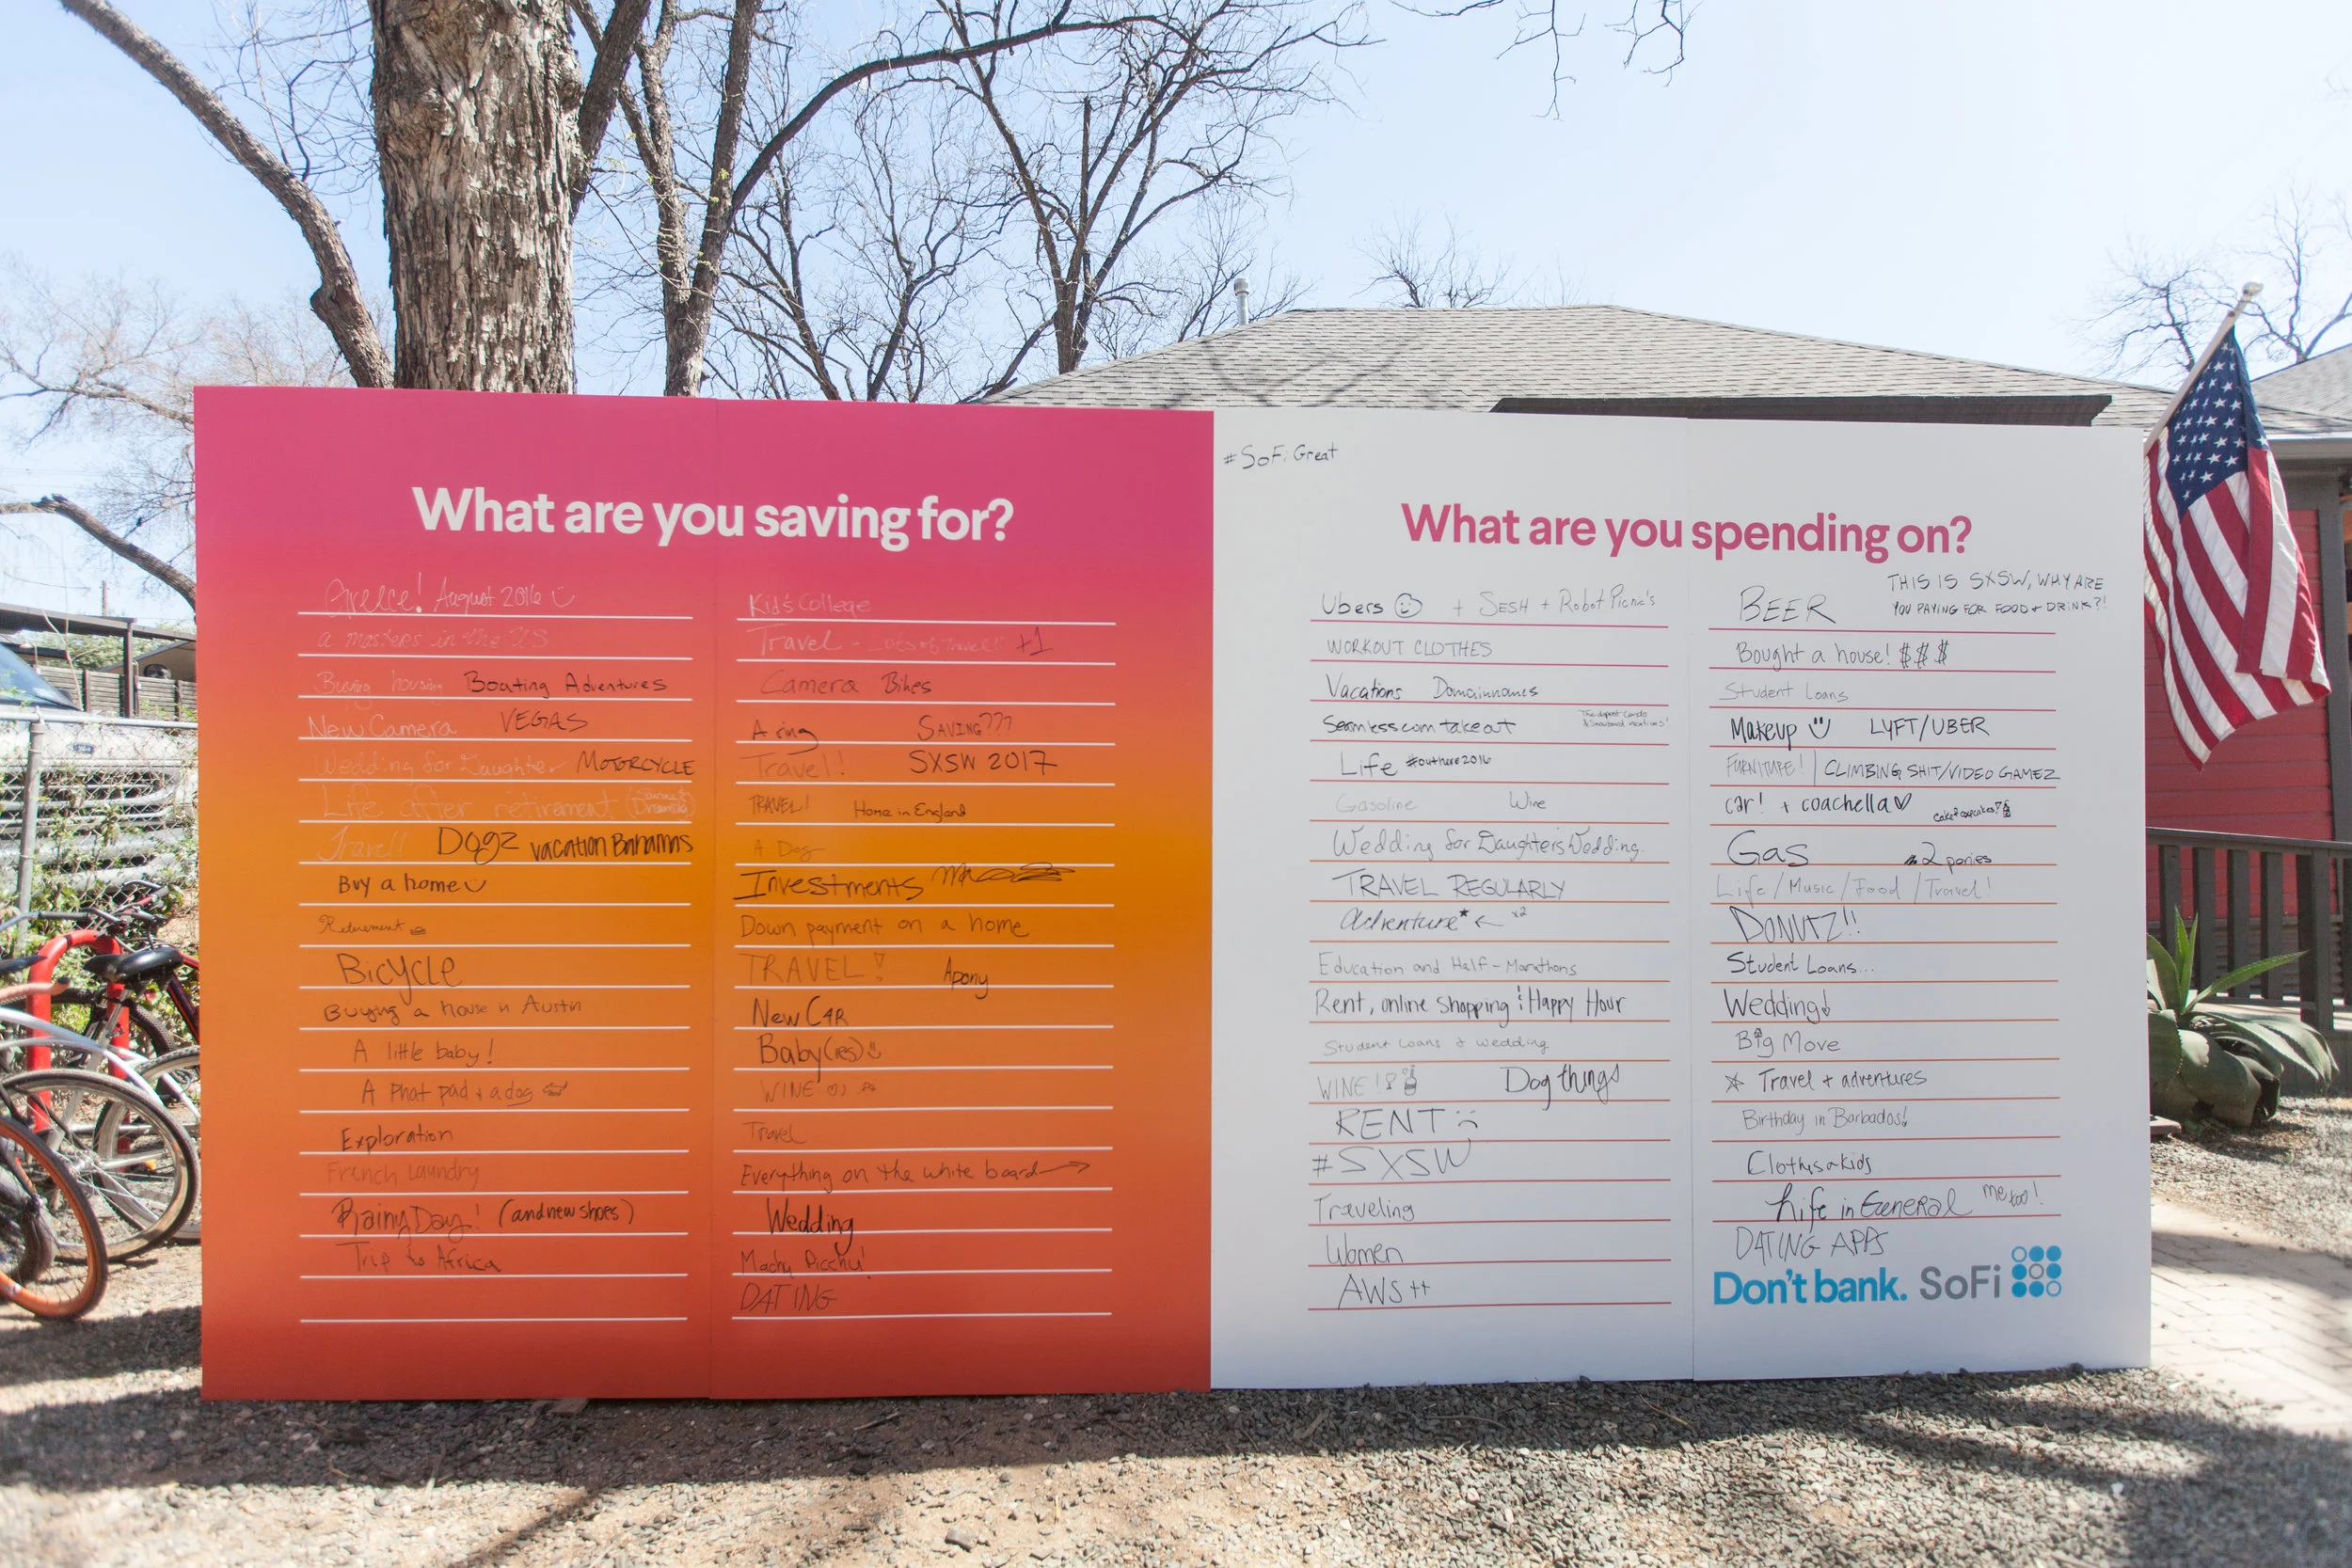 What are you saving for?
Greece! August 2016
a masters in the U.S.
Buying housing Boating Adventures
New Camera VEGAS
Wedding for Daughter MOTORCYCLE
Life after retirement
Travel! Dogz vacation Bahamas
Buy a home
Retirement
Bicycle
Buying a house in Austin
A little baby!
A phat pad + a dog
Exploration
French Laundry
Rainy Day! (and new shoes)
Trip to Africa
Kid's College
Travel - Lots of Travel! +1
Camera Bikes
A ring SAVING???
Travel! SXSW 2017
TRAVEL! Home in England
A Dog
Investments
Down payment on a home
TRAVEL! A pony
New CAR
Baby(ies)
WINE
Travel
Everything on the white board
Wedding
Machu Picchu!
DATING
#SoFi Great
What are you spending on?
Ubers + SESH + Robot Picnic's
WORKOUT CLOTHES
Vacations Domainnames
Seamless.com takeout
Life #outhere2016
Gasoline Wine
Wedding for Daughters Wedding.
TRAVEL REGULARLY
Adventure* x2
Education and Half-Marathons
Rent, online shopping & Happy Hour
Student Loans & wedding
WINE! Dog things
RENT :(
#SXSW
Traveling
Women
AWS++
BEER THIS IS SXSW, WHY ARE
YOU PAYING FOR FOOD + DRINK?!
Bought a house! $$$
Student Loans
Makeup LYFT/UBER
FURNITURE! CLIMBING SHIT/VIDEO GAMEZ
car! + coachella♡ cake & cupcakes?
Gas 2 ponies
Life/Music/Food/Travel!
DONUTZ!!
Student Loans...
Wedding!
Big Move
Travel + adventures
Birthday in Barbados!
Clothes 4 kids
Life in General me too!
DATING APPS
Don't bank. SoFi